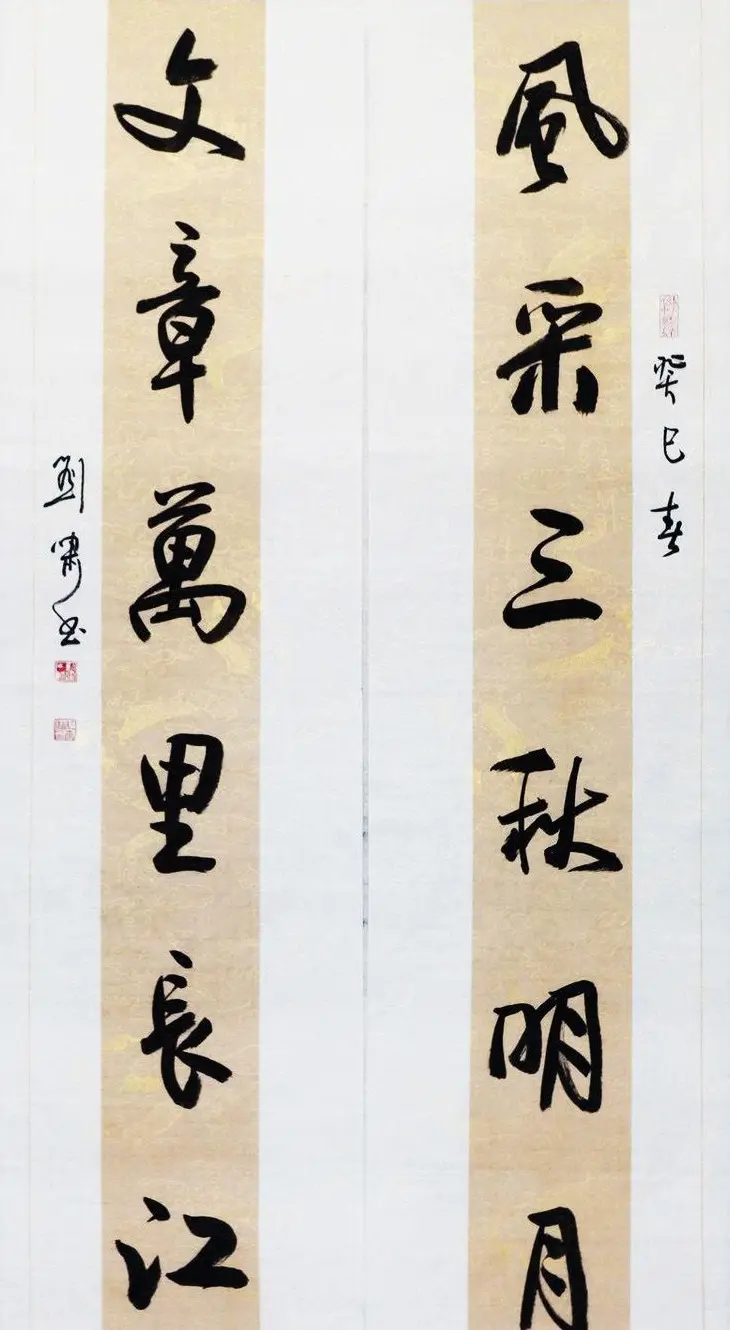 癸巳春
風采三秋明月
文章萬里長江
劉嘯書